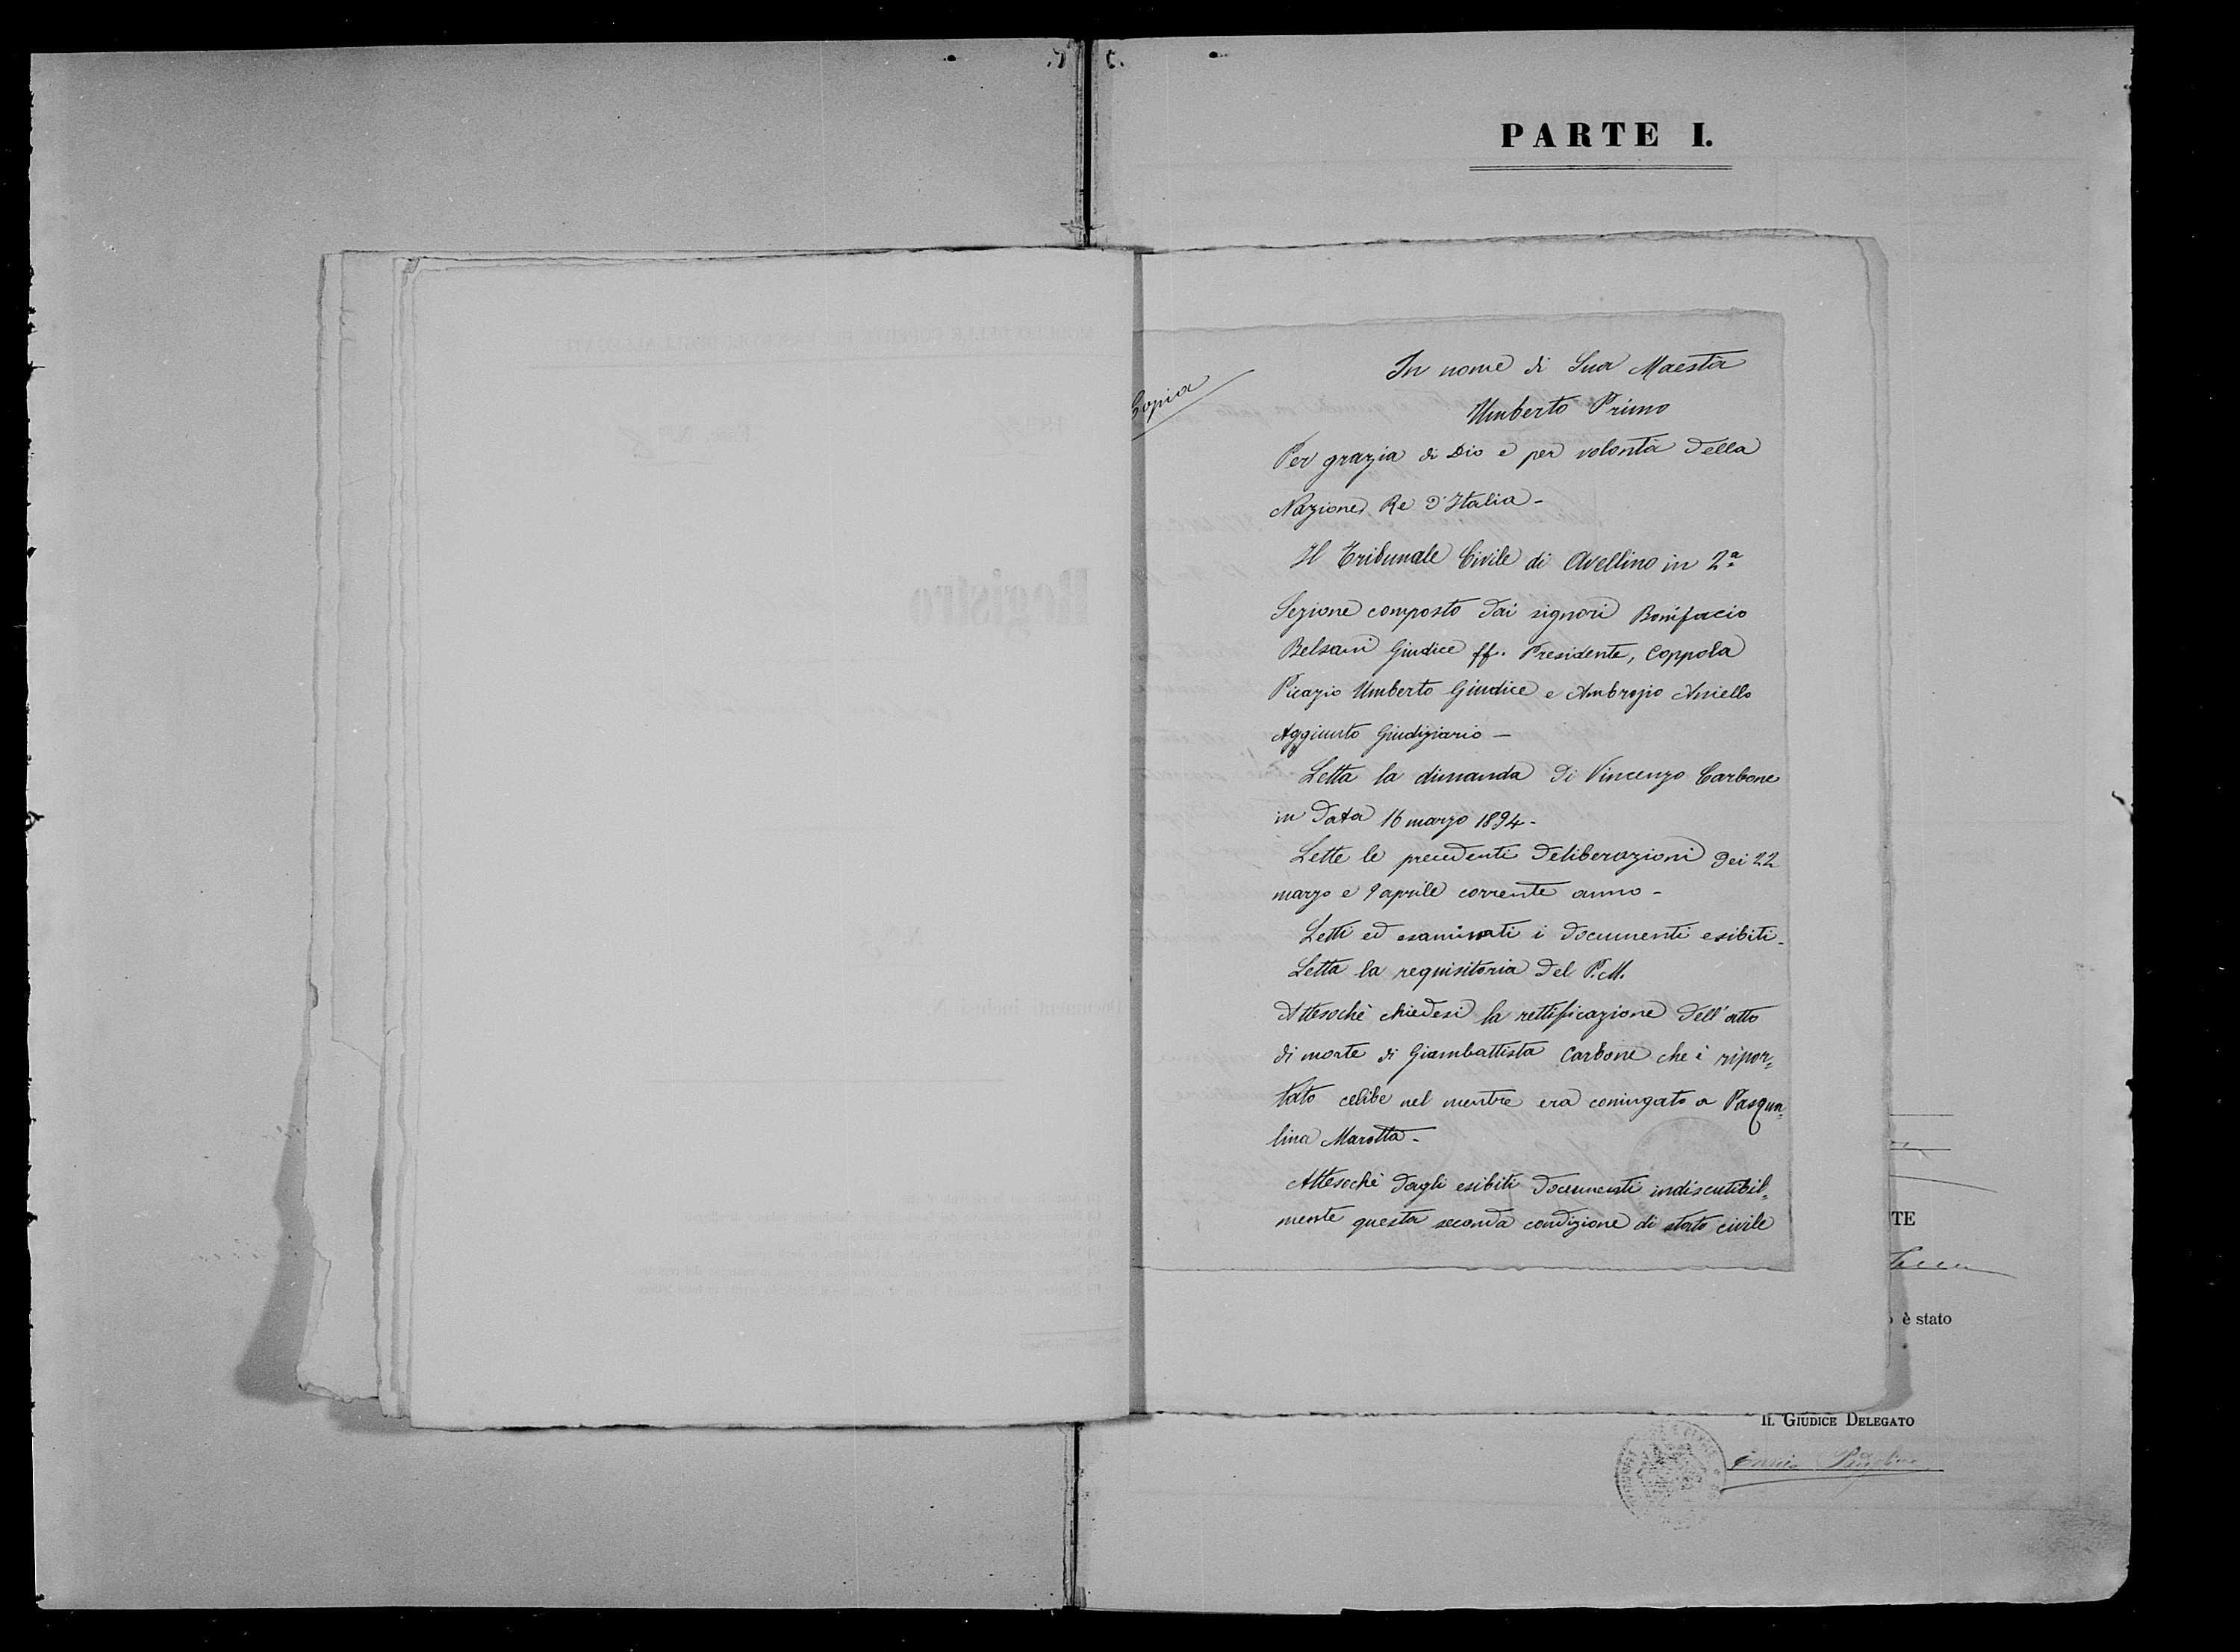 PARTE I.
Copia
In nome di Sua Maestà
Umberto Primo
Per grazia di Dio e per volontà della
Nazione Re d'Italia -
Il Tribunale Civile di Avellino in 2ª
Sezione composto dai signori Bonifacio
Belsani Giudice ff. Presidente, Coppola
Picazio Umberto Giudice e Ambrogio Aniello
Aggiunto Giudiziario -
Letta la dimanda di Vincenzo Carbone
in data 16 marzo 1894 -
Lette le precedenti deliberazioni dei 22
marzo e 9 aprile corrente anno -
Letti ed esaminati i documenti esibiti -
Letta la requisitoria del P. M.
Attesochè chiedesi la rettificazione dell'atto
di morte di Giambattista Carbone che è ripor=
tato celibe nel mentre era coniugato a Pasqua=
lina Marotta -
Attesochè dagli esibiti documenti indiscutibil=
mente questa seconda condizione di stato civile
TE
è stato
IL GIUDICE DELEGATO